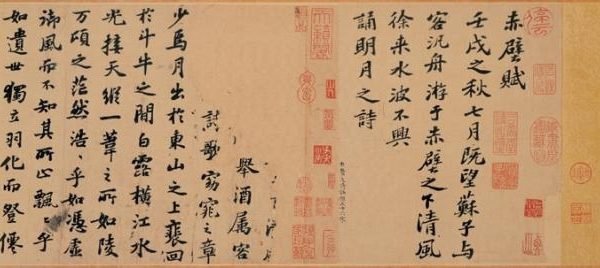 赤壁賦
壬戌之秋七月既望蘇子与
客汎舟游于赤壁之下清風
徐来水波不興
誦明月之詩
舉酒属客
歌窈窕之章
少焉月出於東山之上裴回
於斗牛之間白露橫江水
光接天縱一葦之所如陵
万頃之茫然浩〻乎如憑虛
御風而不知其所止飄〻乎
如遺世獨立羽化而登僊